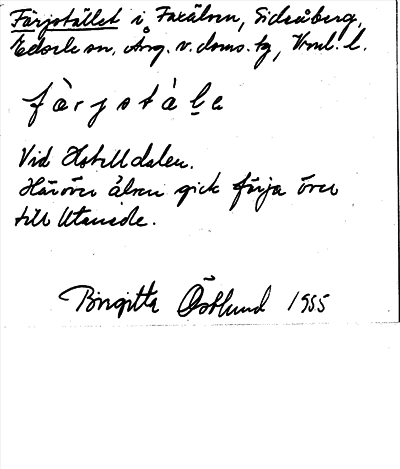 Färjstället i Faxälven, Sidsåberg,
Edsele sn, Ång. v. doms. tg, Vnrl. l.
färjstäle
Vid Hotelldalen.
Här över älven gick färja över
till Utanede.
Birgitta Östlund 1955